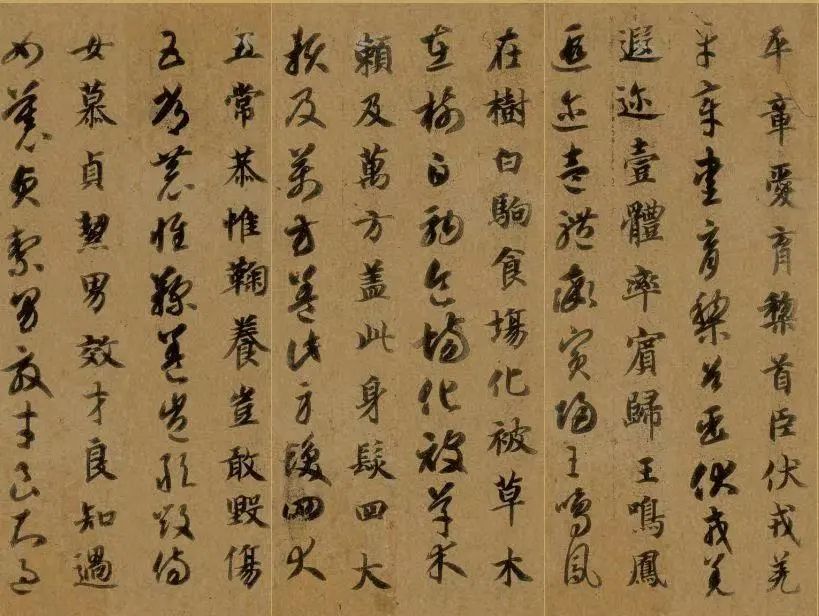 平章愛育黎首臣伏戎羌
平章愛育黎首臣伏戎羌
遐迩壹體率賓歸王鳴鳳
遐迩壹體率賓歸王鳴鳳
在樹白駒食塲化被草木
在樹白駒食塲化被草木
賴及萬方盖此身髮四大
賴及萬方盖此身髮四大
五常恭惟鞠養豈敢毀傷
五常恭惟鞠養豈敢毀傷
女慕貞絜男效才良知過
女慕貞絜男效才良知過